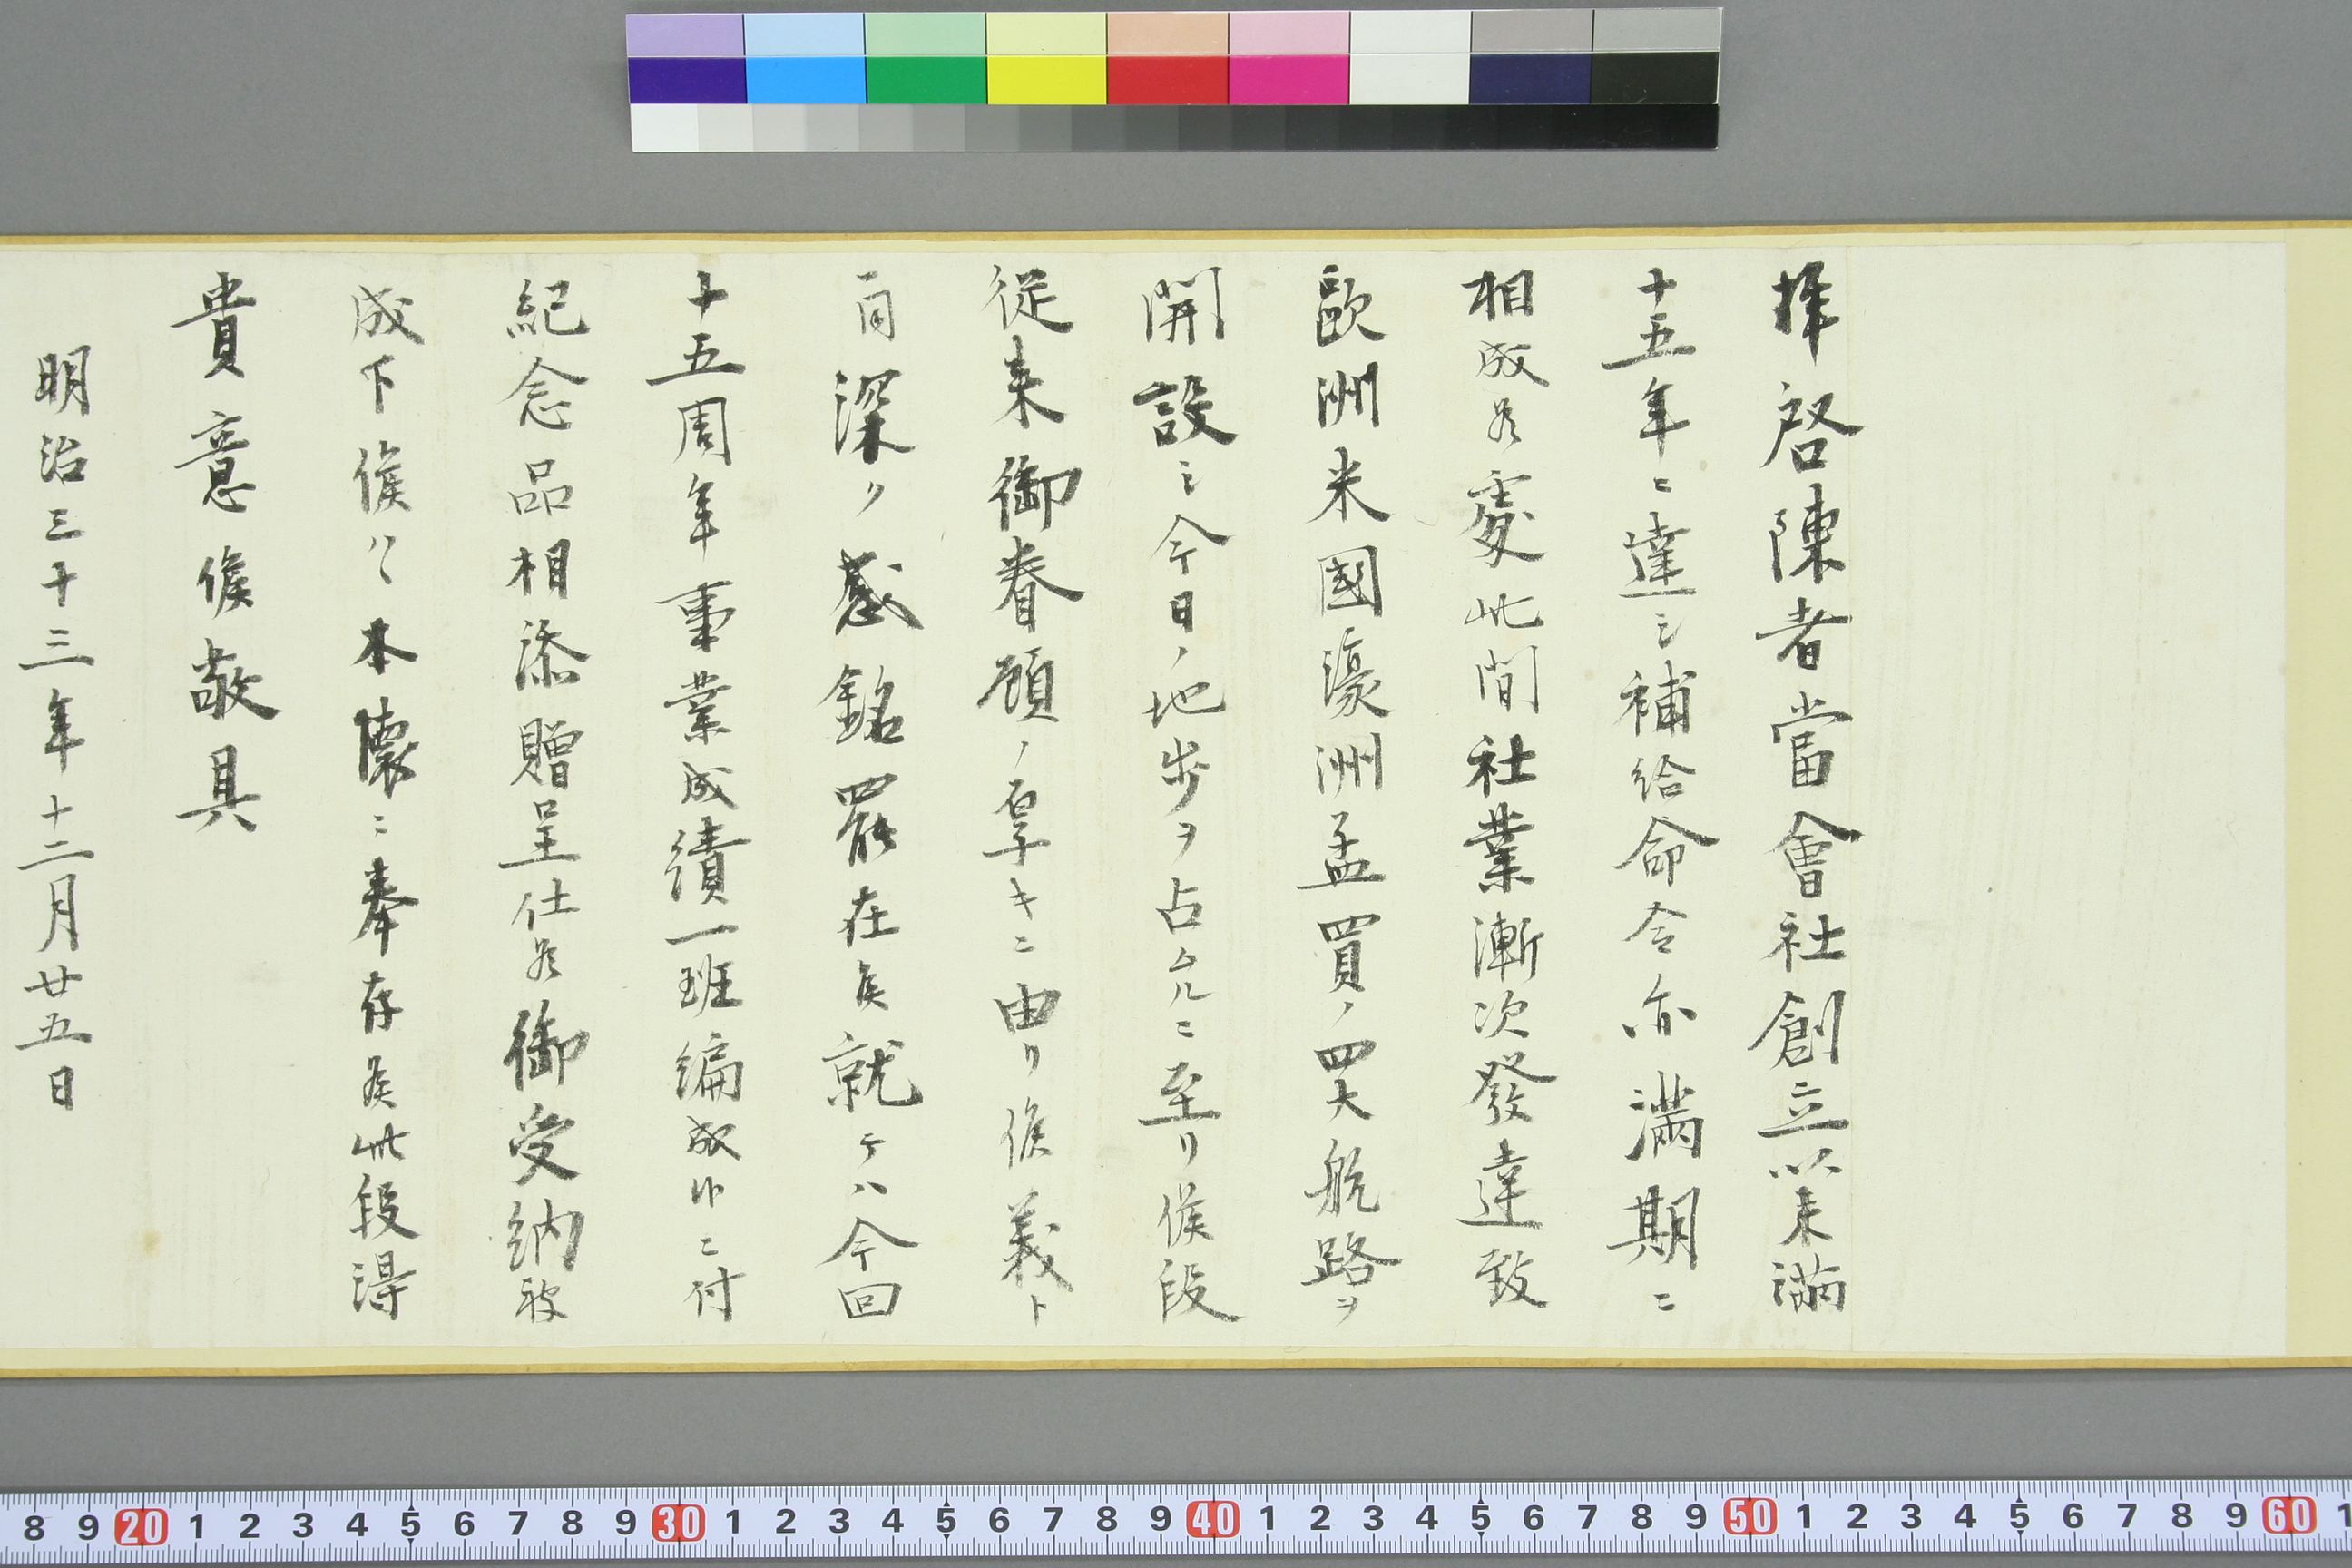 拝啓陳者當會社創立以来満
十五年ニ達シ補給命令亦満期ニ
相成候處此間社業漸次發達致
歐洲米國濠洲孟買ノ四大航路ヲ
開設シ今日ノ地歩ヲ占ムルニ至リ候段
従来御眷顧ノ厚キニ由リ候義ト
一同深ク感銘罷在候就テハ今回
十五周年事業成績一班編成候ニ付
紀念品相添贈呈仕候御受納被
成下候ハヽ本懐ニ奉存候此段得
貴意候敬具
明治三十三年十二月廿五日
8 9 20 1 2 3 4 5 6 7 8 9 30 1 2 3 4 5 6 7 8 9 40 1 2 3 4 5 6 7 8 9 50 1 2 3 4 5 6 7 8 9 60 1